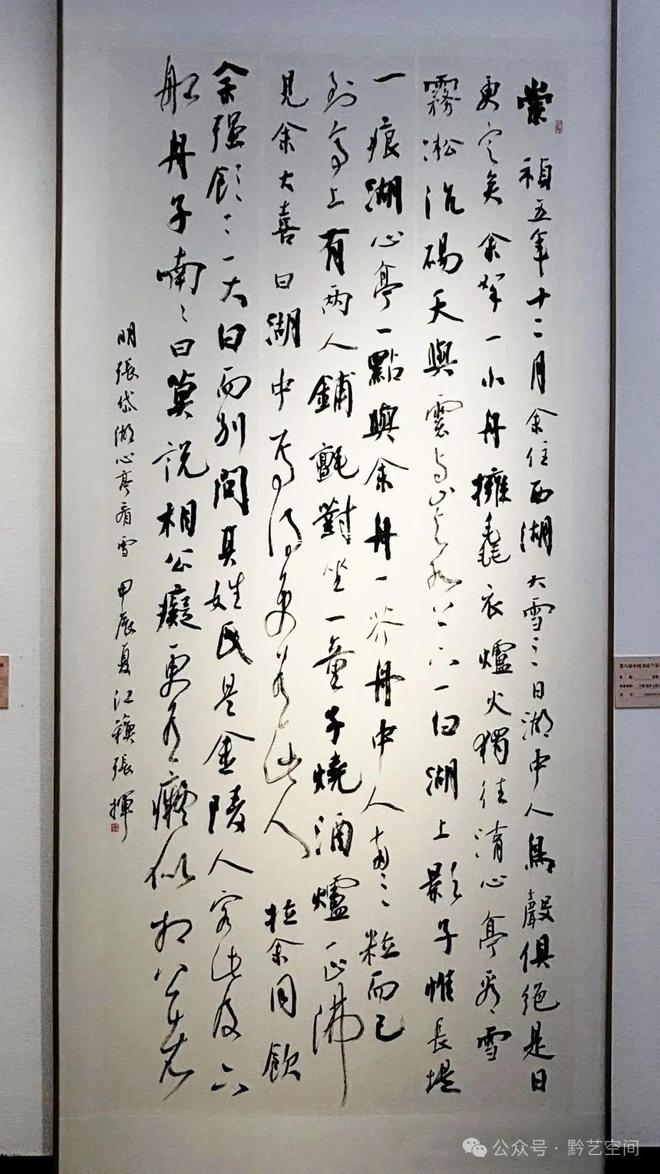 崇禎五年十二月余住西湖大雪三日湖中人鳥聲俱絕是日
更定矣余拏一小舟擁毳衣爐火獨往湖心亭看雪
霧凇沆碭天與雲與山與水上下一白湖上影子惟長堤
一痕湖心亭一點與余舟一芥舟中人兩三粒而已
到亭上有兩人鋪氈對坐一童子燒酒爐正沸
見余大喜曰湖中焉得更有此人拉余同飲
余强飲三大白而別問其姓氏是金陵人客此及下
船舟子喃喃曰莫說相公癡更有癡似相公者
明張岱湖心亭看雪 甲辰夏江籟張揮
公众号·黔艺空间